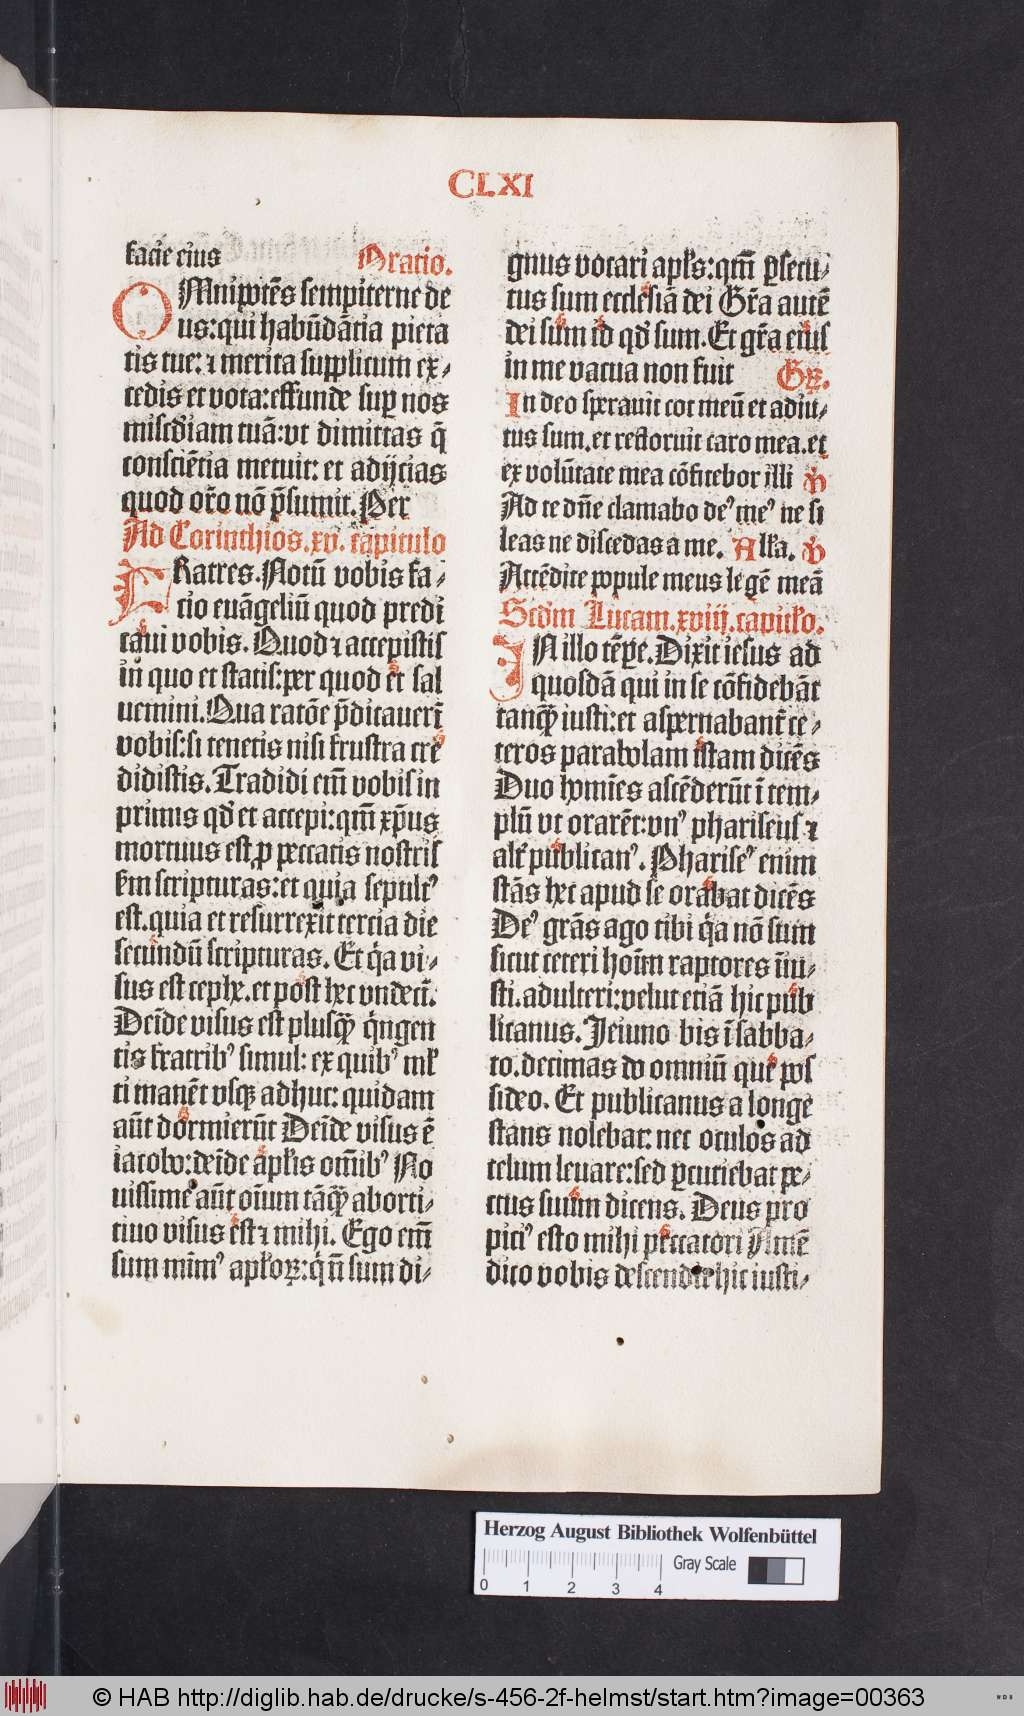 CLXI
facie eius Oratio.
OMnipotēs sempiterne de
us: qui habūdātia pieta
tis tue: ⁊ merita supplicum ex⸗
cedis et vota: effunde suꝑ nos
misc̄diam tuā: vt dimittas q̄
consciētia metuit: et adijcias
quod or̄o nō p̄sumit. Per
Ad Corinthios. xv. capitulo
FRatres. Notū vobis fa⸗
cio euāgeliū quod predi
caui vobis. Quod ⁊ accepistis
in quo et statis: per quod et sal
uemini. Qua ratōe p̄dicauerī
vobis: si tenetis nisi frustra cre
didistis. Tradidi em̄ vobis in
primus qd̓ et accepi: qm̄ xp̄us
mortuus est ꝓ peccatis nostris
sm̄ scripturas: et quia sepult⁹
est. quia et resurrexit tercia die
secundū scripturas. Et q̇a vi⸗
sus est cephe. et post hec vndecī.
Deīde visus est plusq̄ȝ q̇ngen
tis fratrib⁹ simul: ex quib⁹ ml̓
ti manēt vsqȝ adhuc: quidam
aūt dormierūt Deīde visus ē
iacobo: deīde apl̓is om̄ib⁹ No
uissime aūt oīum tāq̄ȝ aborti⸗
tiuo visus est ⁊ mihi. Ego em̄
sum mīm⁹ apl̓oꝝ: q̇ nō sum di⸗
gnus vocari apl̓s: qm̄ ꝑsecu⸗
tus sum ecclesiā dei Gr̄a autē
dei sum id qd̓ sum. Et gr̄a eius
in me vacua non fuit Gꝝ.
In deo sperauit cor meū et adiu⸗
tus sum. et refloruit caro mea. et
ex volūtate mea cōfitebor illi ℣
Ad te dn̄e clamabo de⁹ me⁹ ne si
leas ne discedas a me. All̓a. ℣
Attēdite popule meus legē meā
Scd̓m Lucam. xviij. capitl̓o.
IN illo tēꝑe. Dixit iesus ad
quosdā qui in se cōfidebāt
tanq̄ȝ iusti: et aspernabant̄ ce⸗
teros parabolam istam dicēs
Duo homīes ascēderūt ī tem⸗
plū vt orarēt: vn⁹ phariseus ⁊
alt̓ publican⁹. Pharise⁹ enim
stās hec apud se orabat dicēs
De⁹ grās ago tibi q̇a nō sum
sicut ceteri hoīm raptores īiu⸗
sti. adulteri: velut etiā hic pub
licanus. Jeiuno bis ī sabba⸗
to. decimas do omniū que pos
sideo. Et publicanus a longe
stans nolebat: nec oculos ad
celum leuare: sed ꝑcutiebat pe⸗
ctus suum dicens. Deus pro
pici⁹ esto mihi peccatori Amē
dico vobis descendit hic iusti⸗
Herzog August Bibliothek Wolfenbüttel
0 1 2 3 4 Gray Scale
© HAB http://diglib.hab.de/drucke/s-456-2f-helmst/start.htm?image=00363